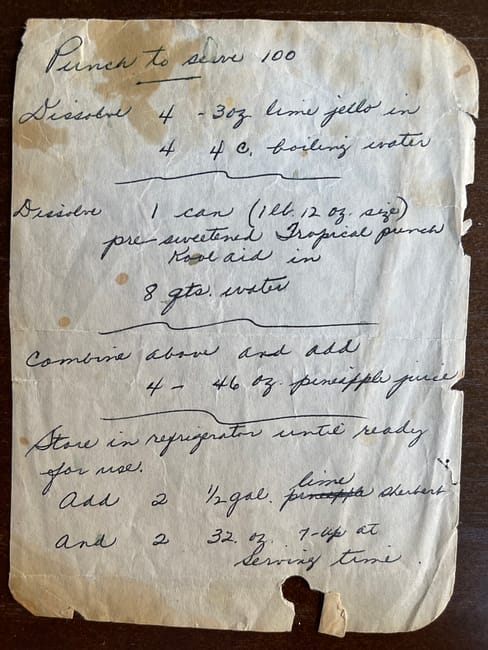 Punch to serve 100
Dissolve 4 - 3oz lime jello in
4 4 c. boiling water
Dissolve 1 can (1 lb. 12 oz. size)
pre-sweetened Tropical punch
Kool aid in
8 qts. water
Combine above and add
4 - 46 oz. pineapple juice
Store in refrigerator until ready
for use.
lime
Add 2 1/2 gal. pineapple sherbert
And 2 32. oz. 7-up at
Serving time.